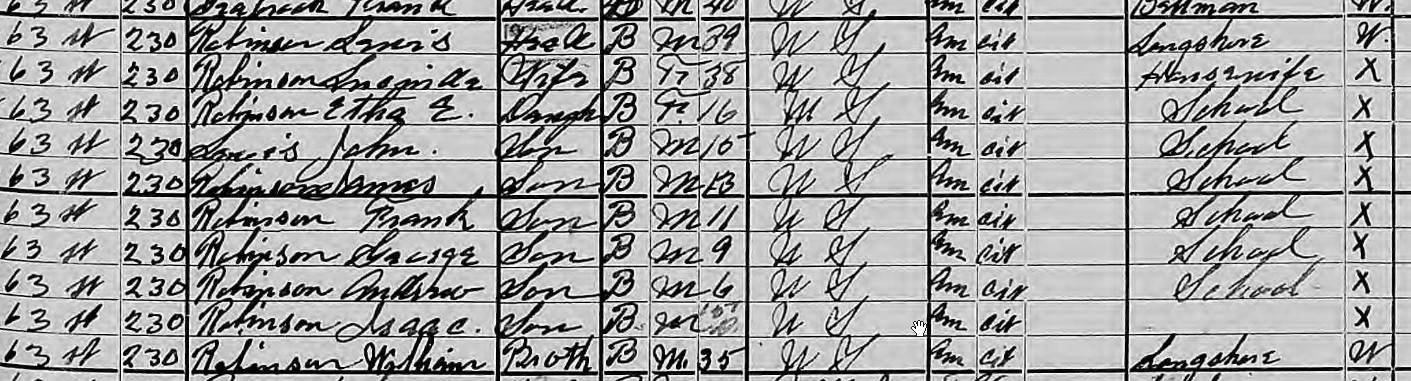 63 st 230 Frank Head M 40 W U S Am cit W
63 st 230 Robinson Lewis Head B M 39 U S Am cit Longshore W
63 st 230 Robinson Lucinda Wife B F 38 U S Am cit Housewife X
63 st 230 Robinson Etha E. Daugh B F 16 U S Am cit School X
63 st 230 Lewis John. Son B M 15 U S Am cit School X
63 st 230 Robinson James Son B M 13 U S Am cit School X
63 st 230 Robinson Frank Son B M 11 U S Am cit School X
63 st 230 Robinson George Son B M 9 U S Am cit School X
63 st 230 Robinson Andrew Son B M 6 U S Am cit School X
63 st 230 Robinson Isaac. Son B M U S Am cit X
63 st 230 Robinson William Broth B M 35 U S Am cit Longshore W